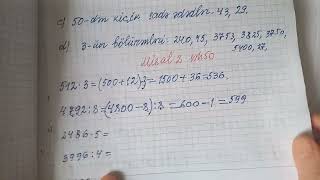 c) 50-dən kiçik sadə ədədlər. 43, 29.
d) 3-ün bölünənləri: 240, 45, 3753, 3825, 3750,
5400, 27,
Misal 2.
512·3=(500+12)·3=1500+36=536.
4792:8=(4800-8):8=600-1=599
2486·5=
3996:4=